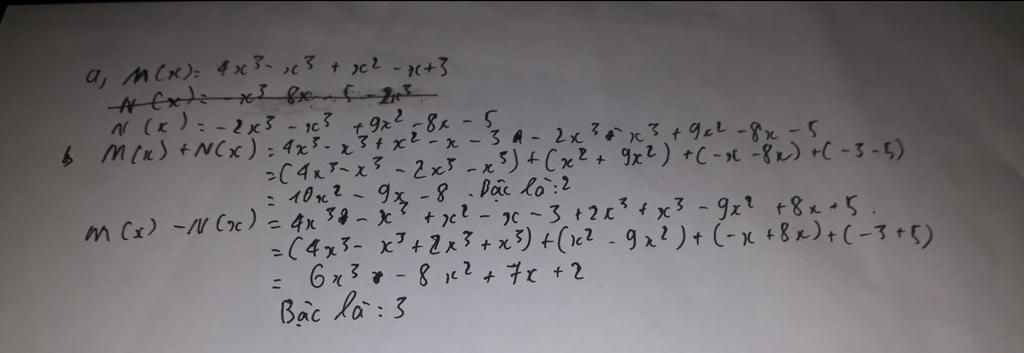 a, M(x) = 4x³ - x³ + x² - x + 3
N(x) = -x³ 8x - 5 - 2x³
N(x) = -2x³ - x³ + 9x² - 8x - 5
b M(x) + N(x) = 4x³ - x³ + x² - x - 3 - 2x³ - x³ + 9x² - 8x - 5
= (4x³ - x³ - 2x³ - x³) + (x² + 9x²) + (-x - 8x) + (-3 - 5)
= 10x² - 9x - 8 . Bậc là : 2
M(x) - N(x) = 4x³ - x³ + x² - x - 3 + 2x³ + x³ - 9x² + 8x + 5.
= (4x³ - x³ + 2x³ + x³) + (x² - 9x²) + (-x + 8x) + (-3 + 5)
= 6x³ - 8x² + 7x + 2
Bậc là : 3